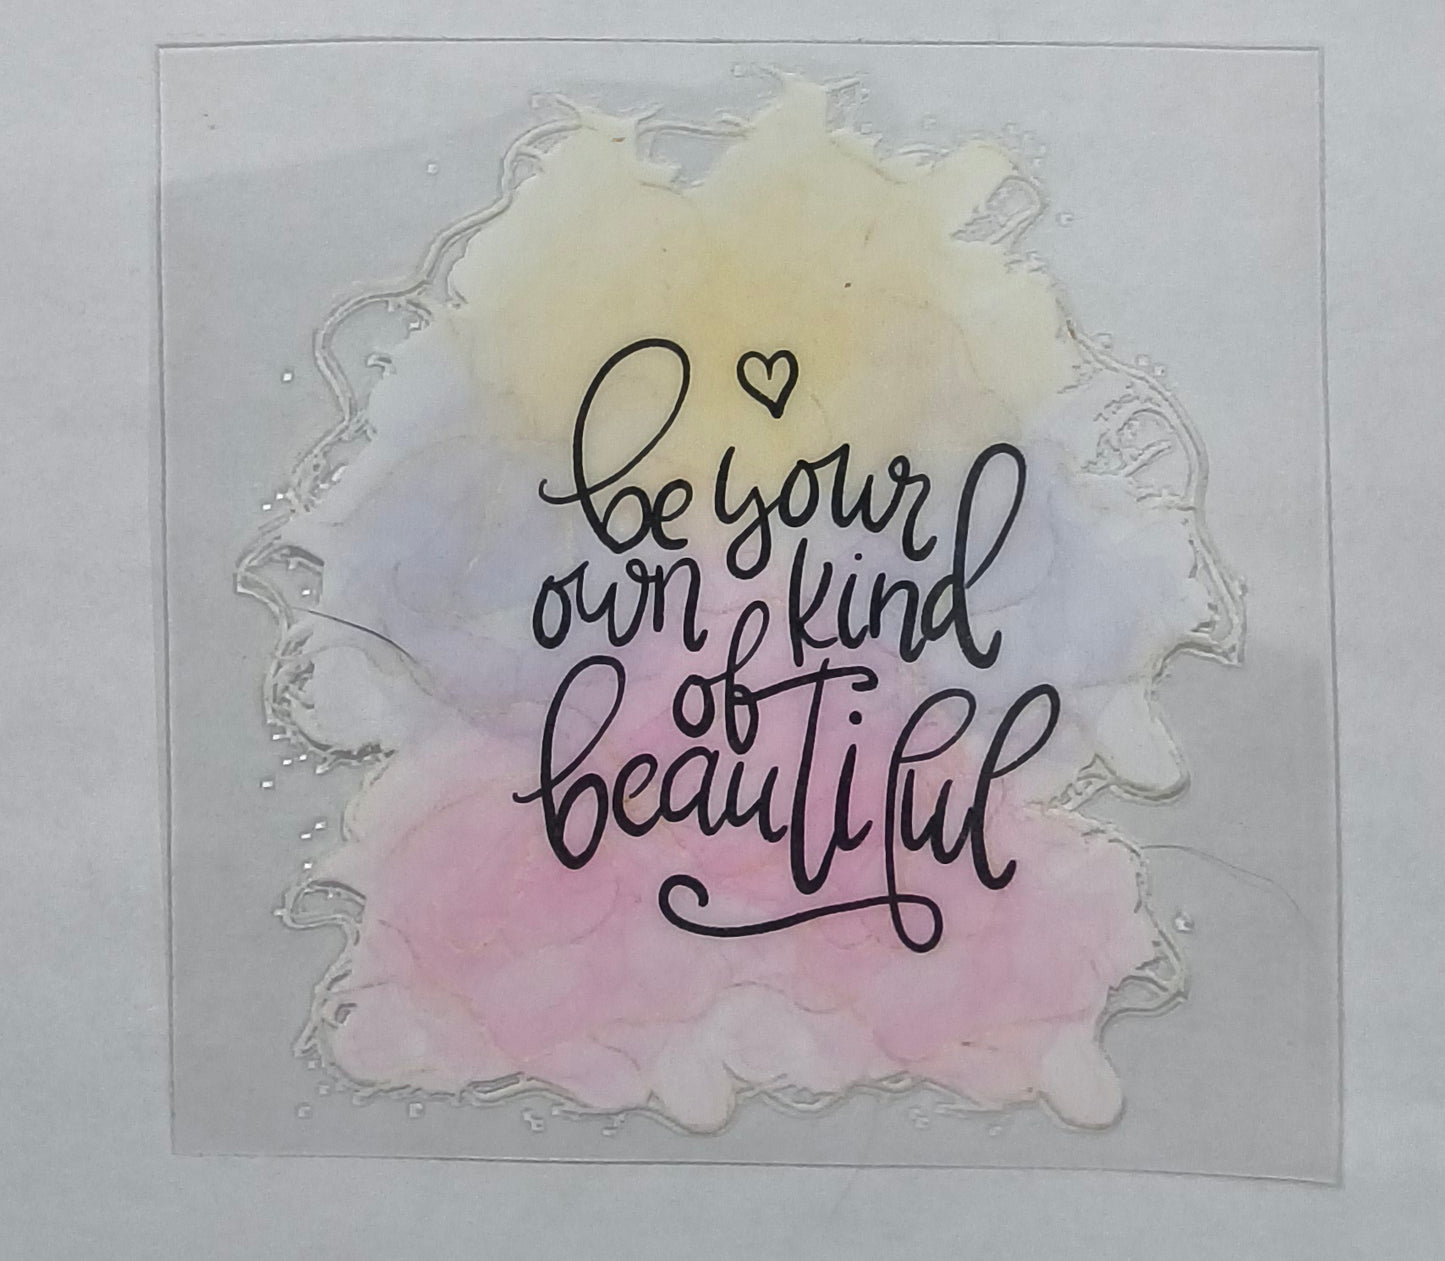 be your
own kind
of
beautiful